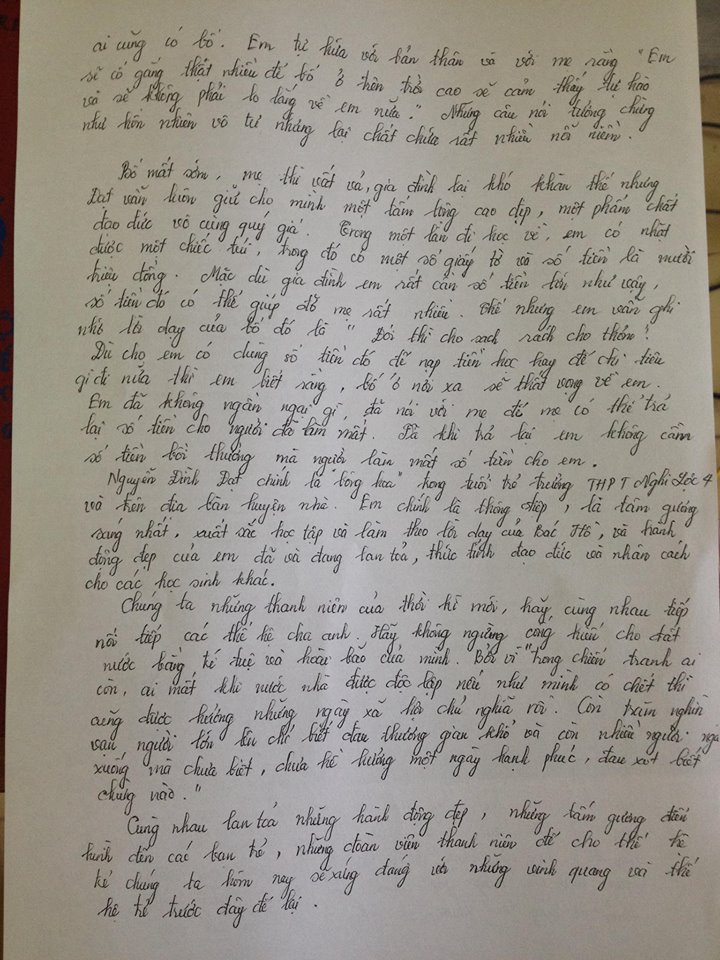 ai cũng có bố. Em tự hứa với bản thân và với mẹ rằng "Em
sẽ cố gắng thật nhiều để bố ở trên trời cao sẽ cảm thấy tự hào
và sẽ không phải lo lắng về em nữa." Những câu nói tưởng chừng
như hồn nhiên vô tư nhưng lại chất chứa rất nhiều nỗi niềm.
Bố mất sớm, mẹ thì vất vả, gia đình lại khó khăn thế nhưng
Đạt vẫn luôn giữ cho mình một tấm lòng cao đẹp, một phẩm chất
đạo đức vô cùng quý giá. Trong một lần đi học về, em có nhặt
được một chiếc túi, trong đó có một số giấy tờ và số tiền là mười
triệu đồng. Mặc dù gia đình em rất cần số tiền lớn như vậy,
số tiền đó có thể giúp đỡ mẹ rất nhiều. Thế nhưng em vẫn ghi
nhớ lời dạy của bố đó là "Đói thì cho sạch rách cho thơm".
Dù cho em có dùng số tiền đó để nạp tiền học hay để chi tiêu
gì đi nữa thì em biết rằng, bố ở nơi xa sẽ thất vọng về em.
Em đã không ngần ngại gì, đã nói với mẹ để mẹ có thể trả
lại số tiền cho người đã làm mất. Và khi trả lại em không cầm
số tiền bồi thường mà người làm mất số tiền cho em.
Nguyễn Đình Đạt chính là "bông hoa" trong tuổi trẻ trường THPT Nghi Lộc 4
và trên địa bàn huyện nhà. Em chính là thông điệp, là tấm gương
sáng nhất, xuất sắc học tập và làm theo lời dạy của Bác Hồ, và hành
động đẹp của em đã và đang lan toả, thức tỉnh đạo đức và nhân cách
cho các học sinh khác.
Chúng ta những thanh niên của thời kì mới, hãy cùng nhau tiếp
nối tiếp các thế hệ cha anh. Hãy không ngừng cống hiến cho đất
nước bằng trí tuệ và hoài bão của mình. Bởi vì "trong chiến tranh ai
còn, ai mất khi nước nhà được độc lập nếu như mình có chết thì
cũng được hưởng những ngày xã hội chủ nghĩa rồi. Còn trăm nghìn
vạn người lớn lên chỉ biết đau thương gian khổ và còn nhiều người ngã
xuống mà chưa biết, chưa hề hưởng một ngày hạnh phúc, đau xót biết
chừng nào."
Cùng nhau lan toả những hành động đẹp, những tấm gương điển
hình đến các bạn trẻ, những đoàn viên thanh niên để cho thế hệ
trẻ chúng ta hôm nay sẽ xứng đáng với những vinh quang và thế
hệ trẻ trước đây để lại.